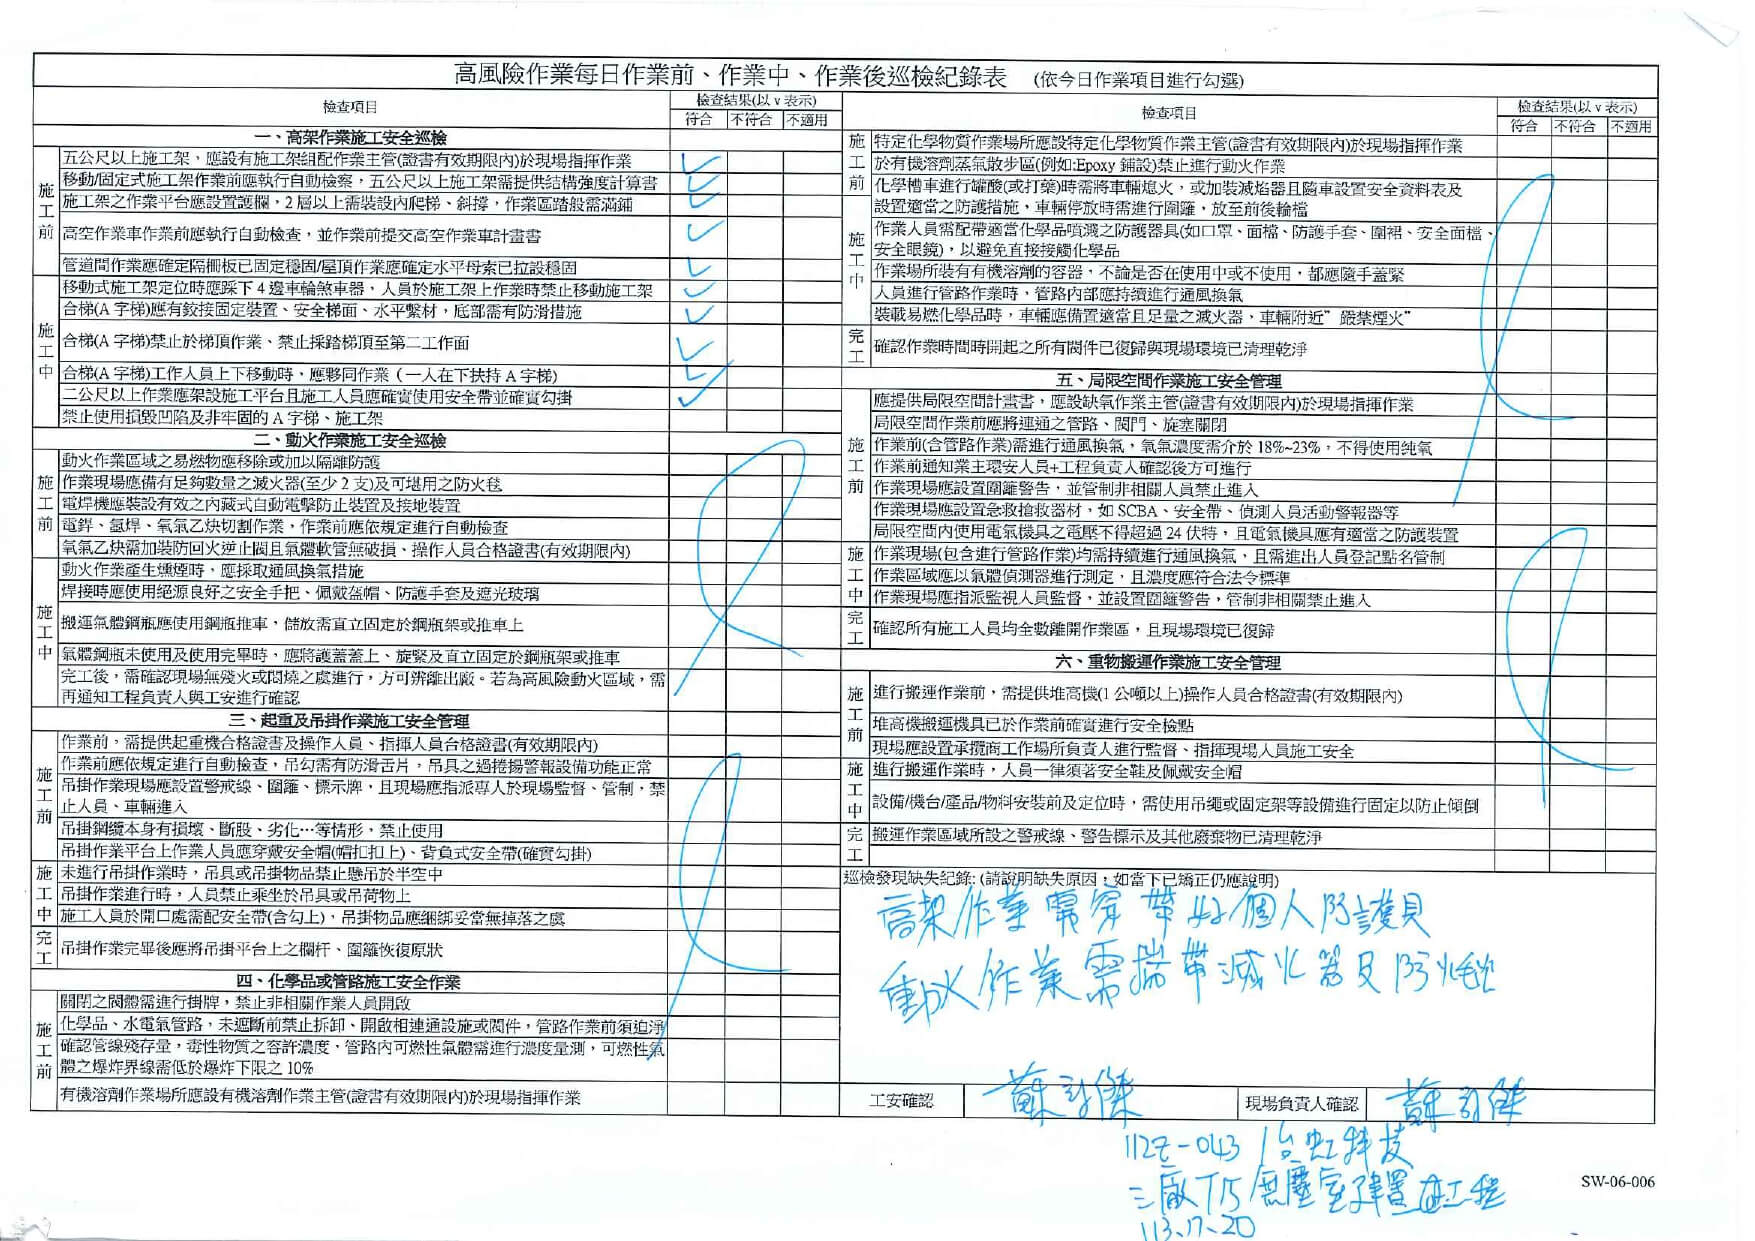 高風險作業每日作業前、作業中、作業後巡檢紀錄表 (依今日作業項目進行勾選)
檢查項目
檢查結果(以 v 表示)
符合 不符合 不適用
一、高架作業施工安全巡檢
施工前
五公尺以上施工架，應設有施工架組配作業主管(證書有效期限內)於現場指揮作業
移動/固定式施工架作業前應執行自動檢察，五公尺以上施工架需提供結構強度計算書
施工架之作業平台應設置護欄，2 層以上需裝設內爬梯、斜撐，作業區踏般需滿鋪
高空作業車作業前應執行自動檢查，並作業前提交高空作業車計畫書
管道間作業應確定隔柵板已固定穩固/屋頂作業應確定水平母索已拉設穩固
施工中
移動式施工架定位時應踩下 4 邊車輪煞車器，人員於施工架上作業時禁止移動施工架
合梯(A 字梯)應有鉸接固定裝置、安全梯面、水平繫材，底部需有防滑措施
合梯(A 字梯)禁止於梯頂作業、禁止採踏梯頂至第二工作面
合梯(A 字梯)工作人員上下移動時，應夥同作業（一人在下扶持 A 字梯)
二公尺以上作業應架設施工平台且施工人員應確實使用安全帶並確實勾掛
禁止使用損毀凹陷及非牢固的 A 字梯、施工架
二、動火作業施工安全巡檢
施工前
動火作業區域之易燃物應移除或加以隔離防護
作業現場應備有足夠數量之滅火器(至少 2 支)及可堪用之防火毯
電焊機應裝設有效之內藏式自動電擊防止裝置及接地裝置
電銲、氬焊、氧氣乙炔切割作業，作業前應依規定進行自動檢查
氧氣乙炔需加裝防回火逆止閥且氣體軟管無破損、操作人員合格證書(有效期限內)
施工中
動火作業產生燻煙時，應採取通風換氣措施
焊接時應使用絕源良好之安全手把、佩戴盔帽、防護手套及遮光玻璃
搬運氣體鋼瓶應使用鋼瓶推車，儲放需直立固定於鋼瓶架或推車上
氣體鋼瓶未使用及使用完畢時，應將護蓋蓋上、旋緊及直立固定於鋼瓶架或推車
完工後，需確認現場無殘火或悶燒之處進行，方可辦離出廠。若為高風險動火區域，需
再通知工程負責人與工安進行確認
三、起重及吊掛作業施工安全管理
施工前
作業前，需提供起重機合格證書及操作人員、指揮人員合格證書(有效期限內)
作業前應依規定進行自動檢查，吊勾需有防滑舌片，吊具之過捲揚警報設備功能正常
吊掛作業現場應設置警戒線、圍籬、標示牌，且現場應指派專人於現場監督、管制，禁
止人員、車輛進入
吊掛鋼纜本身有損壞、斷股、劣化…等情形，禁止使用
吊掛作業平台上作業人員應穿戴安全帽(帽扣扣上)、背負式安全帶(確實勾掛)
施工中
未進行吊掛作業時，吊具或吊掛物品禁止懸吊於半空中
吊掛作業進行時，人員禁止乘坐於吊具或吊荷物上
施工人員於開口處需配安全帶(含勾上)，吊掛物品應綑綁妥當無掉落之虞
完工
吊掛作業完畢後應將吊掛平台上之欄杆、圍籬恢復原狀
四、化學品或管路施工安全作業
施工前
關閉之閥體需進行掛牌，禁止非相關作業人員開啟
化學品、水電氣管路，未遮斷前禁止拆卸、開啟相連通設施或閥件，管路作業前須迫淨
確認管線殘存量，毒性物質之容許濃度，管路內可燃性氣體需進行濃度量測，可燃性氣
體之爆炸界線需低於爆炸下限之 10%
有機溶劑作業場所應設有機溶劑作業主管(證書有效期限內)於現場指揮作業
檢查項目
檢查結果(以 v 表示)
符合 不符合 不適用
施工前
特定化學物質作業場所應設特定化學物質作業主管(證書有效期限內)於現場指揮作業
於有機溶劑蒸氣散步區(例如:Epoxy 鋪設)禁止進行動火作業
化學槽車進行罐酸(或打藥)時需將車輛熄火，或加裝滅焰器且隨車設置安全資料表及
設置適當之防護措施，車輛停放時需進行圍離，放至前後輪檔
施工中
作業人員需配帶適當化學品噴濺之防護器具(如口罩、面檔、防護手套、圍裙、安全面檔、
安全眼鏡)，以避免直接接觸化學品
作業場所裝有有機溶劑的容器，不論是否在使用中或不使用，都應隨手蓋緊
人員進行管路作業時，管路內部應持續進行通風換氣
裝載易燃化學品時，車輛應備置適當且足量之滅火器，車輛附近”嚴禁煙火”
完工
確認作業時間時開起之所有閥件已復歸與現場環境已清理乾淨
五、局限空間作業施工安全管理
施工前
應提供局限空間計畫書，應設缺氧作業主管(證書有效期限內)於現場指揮作業
局限空間作業前應將連通之管路、閥門、旋塞關閉
作業前(含管路作業)需進行通風換氣，氧氣濃度需介於 18%~23%，不得使用純氧
作業前通知業主環安人員+工程負責人確認後方可進行
作業現場應設置圍籬警告，並管制非相關人員禁止進入
作業現場應設置急救搶救器材，如 SCBA、安全帶、偵測人員活動警報器等
局限空間內使用電氣機具之電壓不得超過 24 伏特，且電氣機具應有適當之防護裝置
施工中
作業現場(包含進行管路作業)均需持續進行通風換氣，且需進出人員登記點名管制
作業區域應以氣體偵測器進行測定，且濃度應符合法令標準
作業現場應指派監視人員監督，並設置圍籬警告，管制非相關禁止進入
完工
確認所有施工人員均全數離開作業區，且現場環境已復歸
六、重物搬運作業施工安全管理
施工前
進行搬運作業前，需提供堆高機(1 公噸以上)操作人員合格證書(有效期限內)
堆高機搬運機具已於作業前確實進行安全檢點
現場應設置承攬商工作場所負責人進行監督、指揮現場人員施工安全
施工中
進行搬運作業時，人員一律須著安全鞋及佩戴安全帽
設備/機台/產品/物料安裝前及定位時，需使用吊繩或固定架等設備進行固定以防止傾倒
完工
搬運作業區域所設之警戒線、警告標示及其他廢棄物已清理乾淨
巡檢發現缺失紀錄: (請說明缺失原因，如當下已矯正仍應說明)
高架作業需穿帶好個人防護具
動火作業需携帶滅火器及防火毯
工安確認
現場負責人確認
112Z-043 台虹科技
三廠 T15 無塵室建置工程
SW-06-006